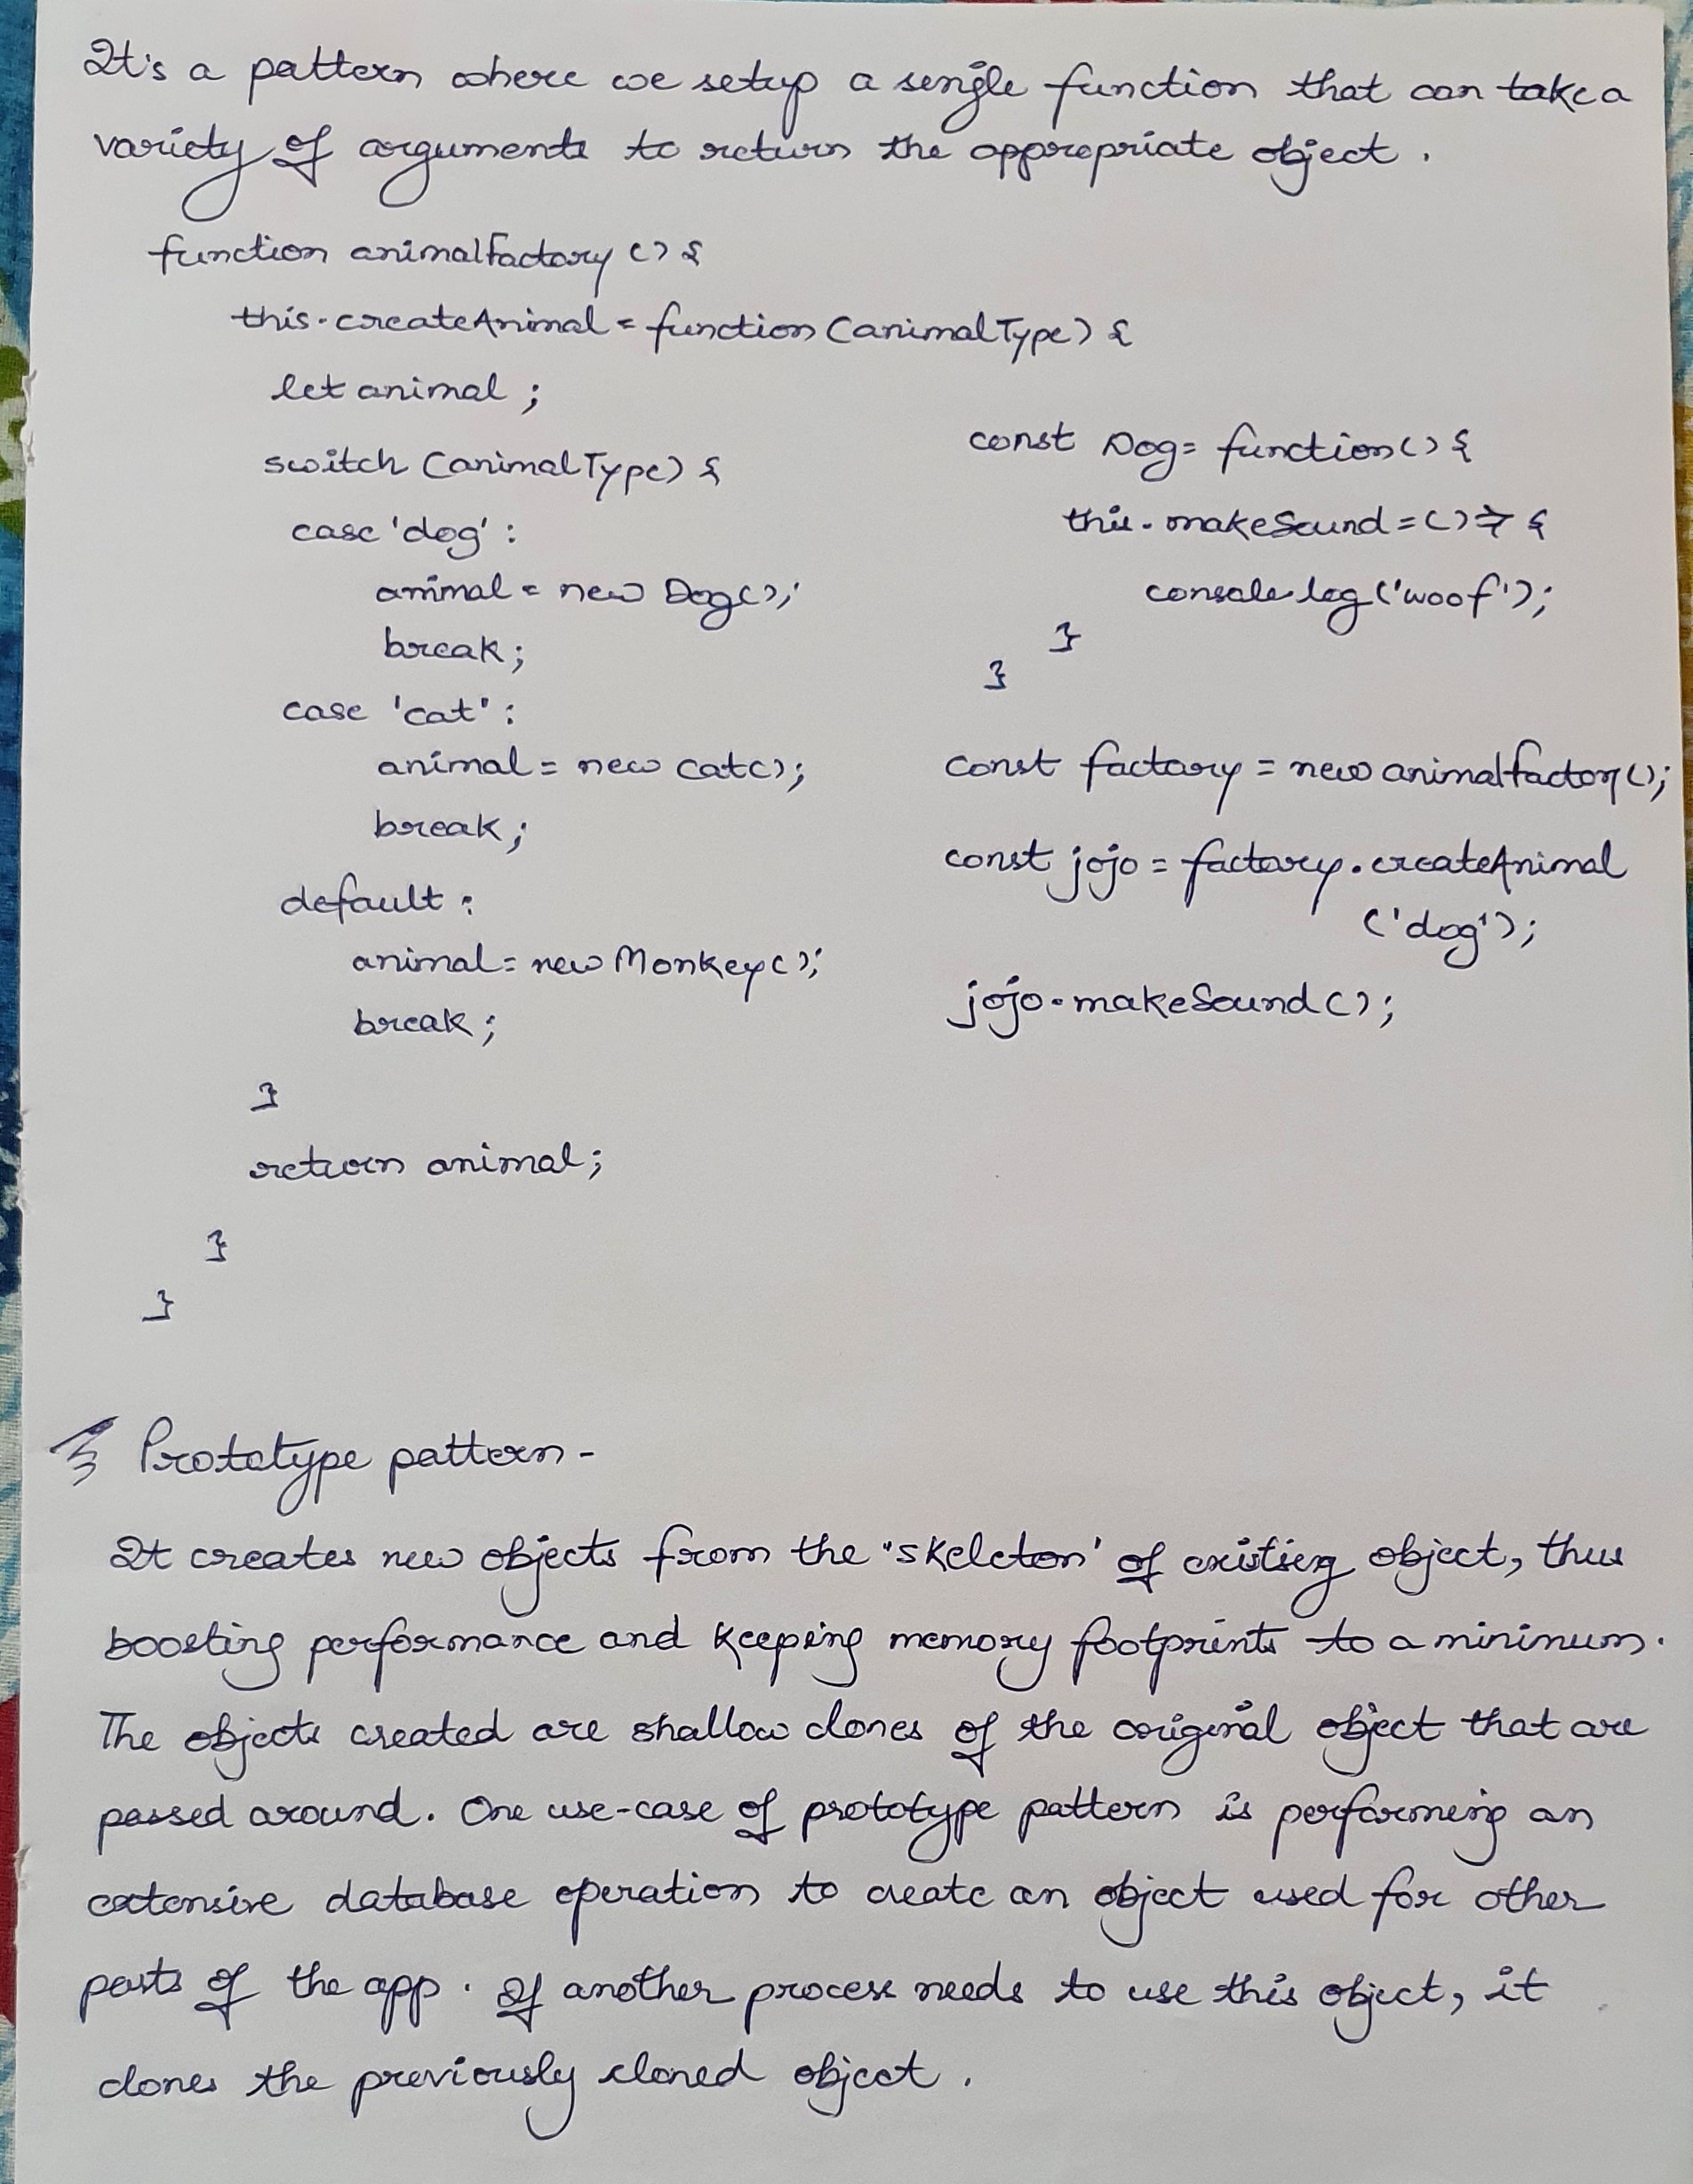 It's a pattern where we setup a single function that can take a
variety of arguments to return the appropriate object.
function animalFactory () {
this.createAnimal = function (animalType) {
let animal ;
switch (animalType) {
case 'dog' :
animal = new Dog();
break;
case 'cat' :
animal = new cat();
break;
default :
animal = new Monkey();
break;
}
return animal;
}
}
const Dog = function() {
this.makeSound = () => {
console.log('woof');
}
}
const factory = new animalFactory();
const jojo = factory.createAnimal
('dog');
jojo.makeSound();
Prototype pattern -
It creates new objects from the 'skeleton' of existing object, thus
boosting performance and keeping memory footprints to a minimum.
The objects created are shallow clones of the original object that are
passed around. One use-case of prototype pattern is performing an
extensive database operation to create an object used for other
parts of the app. If another process needs to use this object, it
clones the previously cloned object.